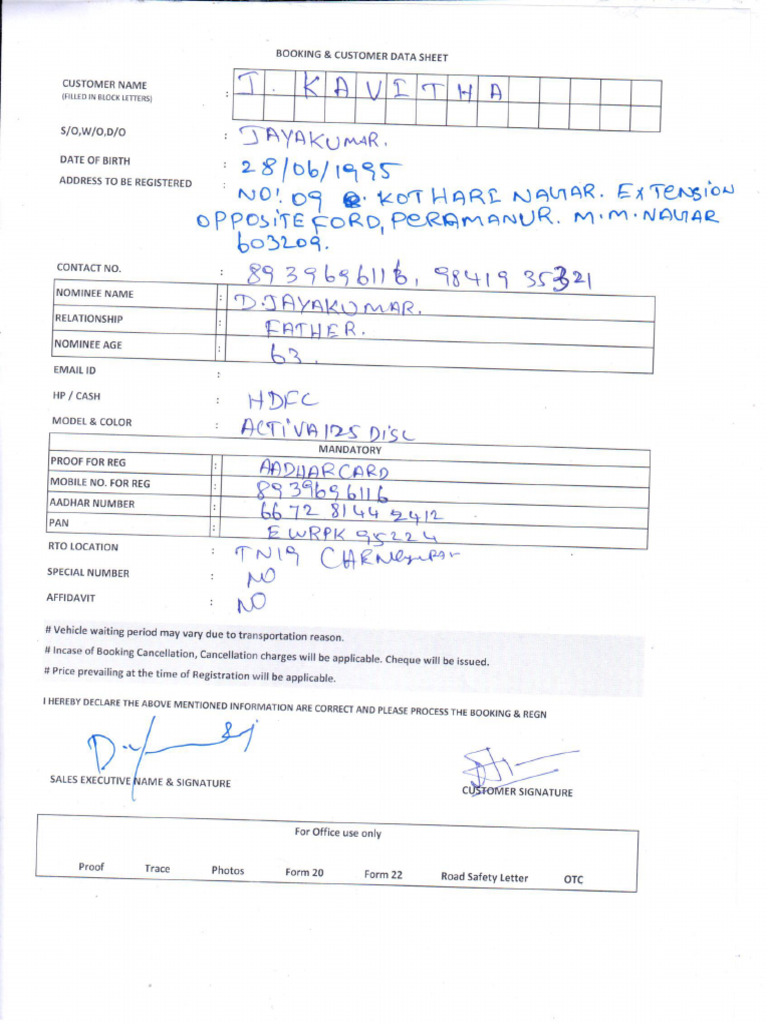 BOOKING & CUSTOMER DATA SHEET
CUSTOMER NAME : J. KAVITHA
(FILLED IN BLOCK LETTERS)
S/O,W/O,D/O : JAYAKUMAR.
DATE OF BIRTH : 28/06/1995
ADDRESS TO BE REGISTERED : NO! 09 KOTHARI NAGAR. EXTENSION
OPPOSITE FORD, PERAMANUR. M.M.NAGAR
603209.
CONTACT NO. : 8939696116, 98419 35321
NOMINEE NAME : D.JAYAKUMAR.
RELATIONSHIP : FATHER.
NOMINEE AGE : 63.
EMAIL ID :
HP / CASH : HDFC
MODEL & COLOR : ACTIVA125 DISC
MANDATORY
PROOF FOR REG : AADHARCARD
MOBILE NO. FOR REG : 8939696116
AADHAR NUMBER : 6672 8144 2412
PAN : EWRPK 95224
RTO LOCATION : TN19
SPECIAL NUMBER : NO
AFFIDAVIT : NO
# Vehicle waiting period may vary due to transportation reason.
# Incase of Booking Cancellation, Cancellation charges will be applicable. Cheque will be issued.
# Price prevailing at the time of Registration will be applicable.
I HEREBY DECLARE THE ABOVE MENTIONED INFORMATION ARE CORRECT AND PLEASE PROCESS THE BOOKING & REGN
SALES EXECUTIVE NAME & SIGNATURE
CUSTOMER SIGNATURE
For Office use only
Proof Trace Photos Form 20 Form 22 Road Safety Letter OTC